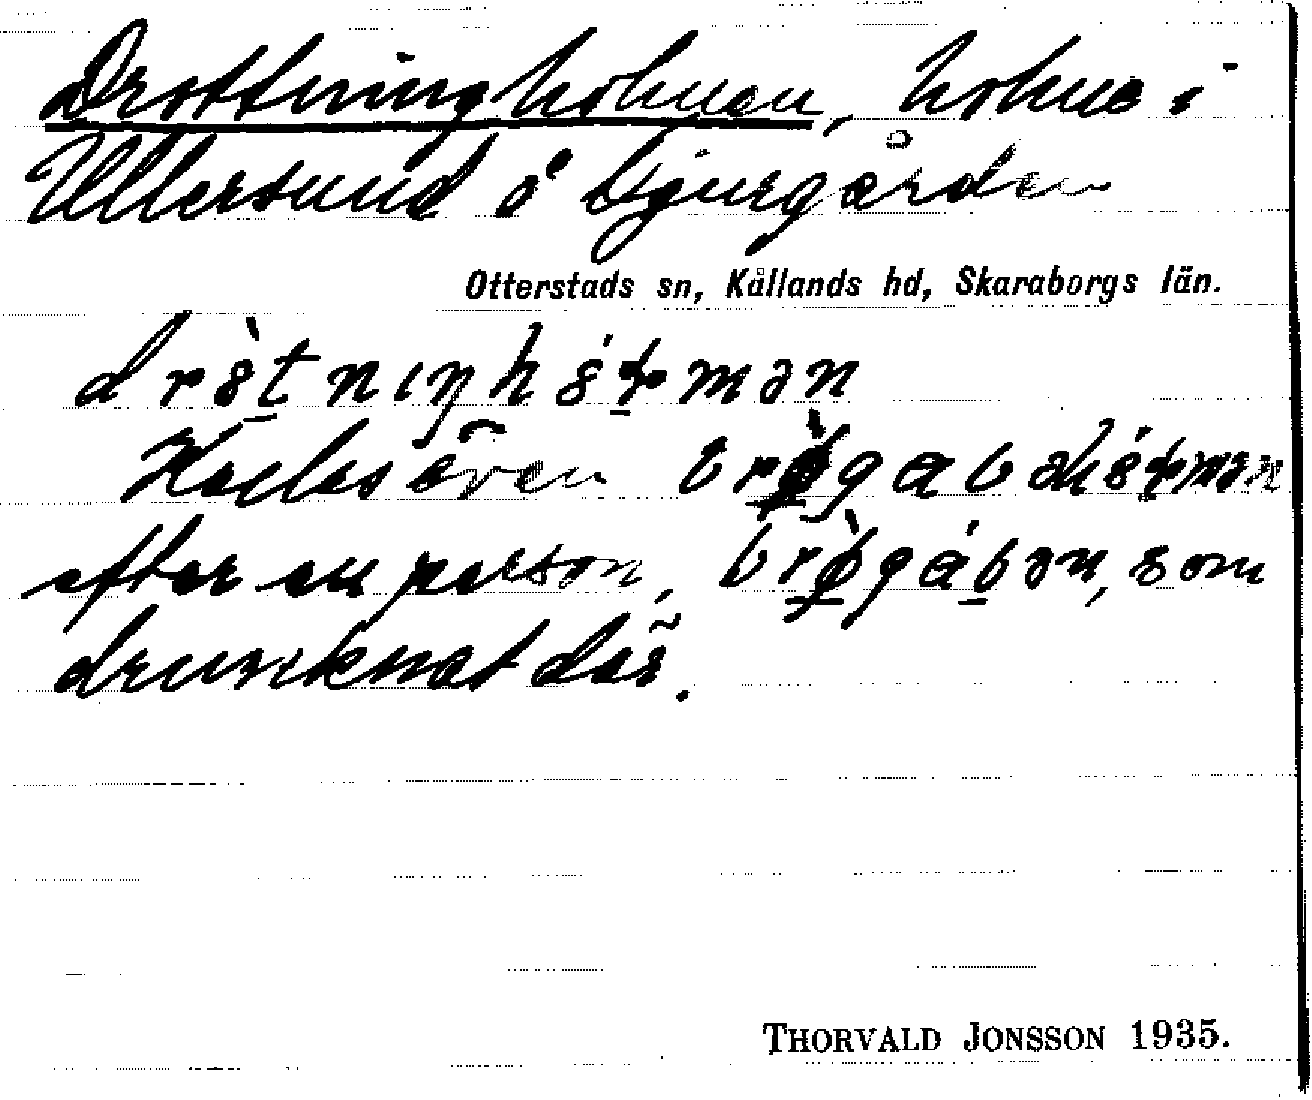 Drottningholmen, holme i
Ullersund å Djurgården
Otterstads sn, Kållands hd, Skaraborgs län.
Kallas även
efter en person, som
drunknat där.
THORVALD JONSSON 1935.